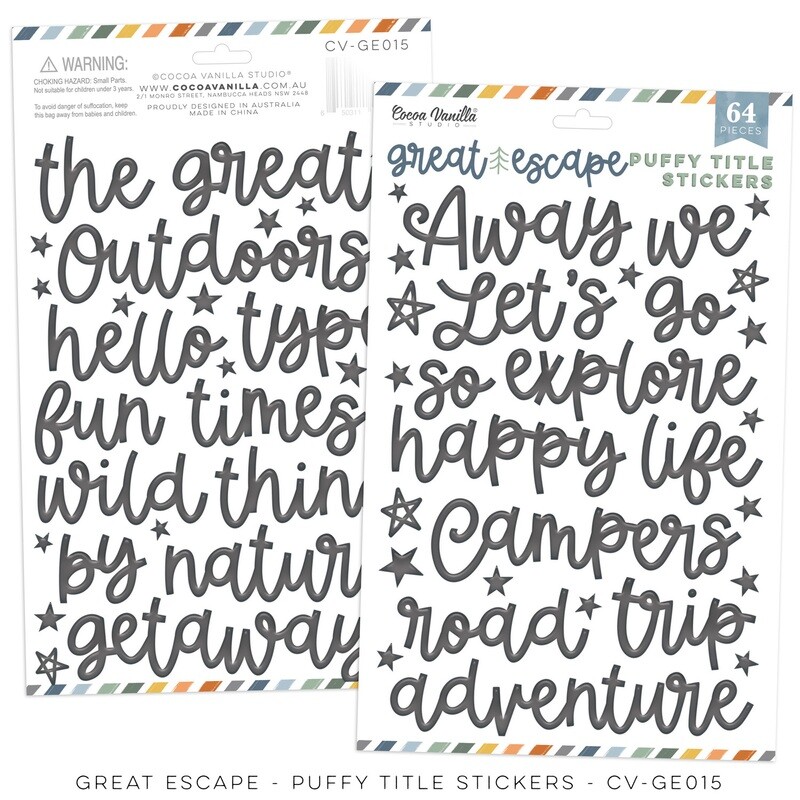 CV-GE015
WARNING:
CHOKING HAZARD: Small Parts.
Not suitable for children under 3 years.
To avoid danger of suffocation, keep
this bag away from babies and children.
©COCOA VANILLA STUDIO®
WWW.COCOAVANILLA.COM.AU
2/10 MONRO STREET, NAMBUCCA HEADS NSW 2448
PROUDLY DESIGNED IN AUSTRALIA
MADE IN CHINA
the great
Outdoors
hello type
fun times
wild thin
by natur
getaway
Cocoa Vanilla®
STUDIO
64
PIECES
great escape
PUFFY TITLE
STICKERS
Away we
Let's go
so explore
happy life
Campers
road trip
adventure
GREAT ESCAPE - PUFFY TITLE STICKERS - CV-GE015